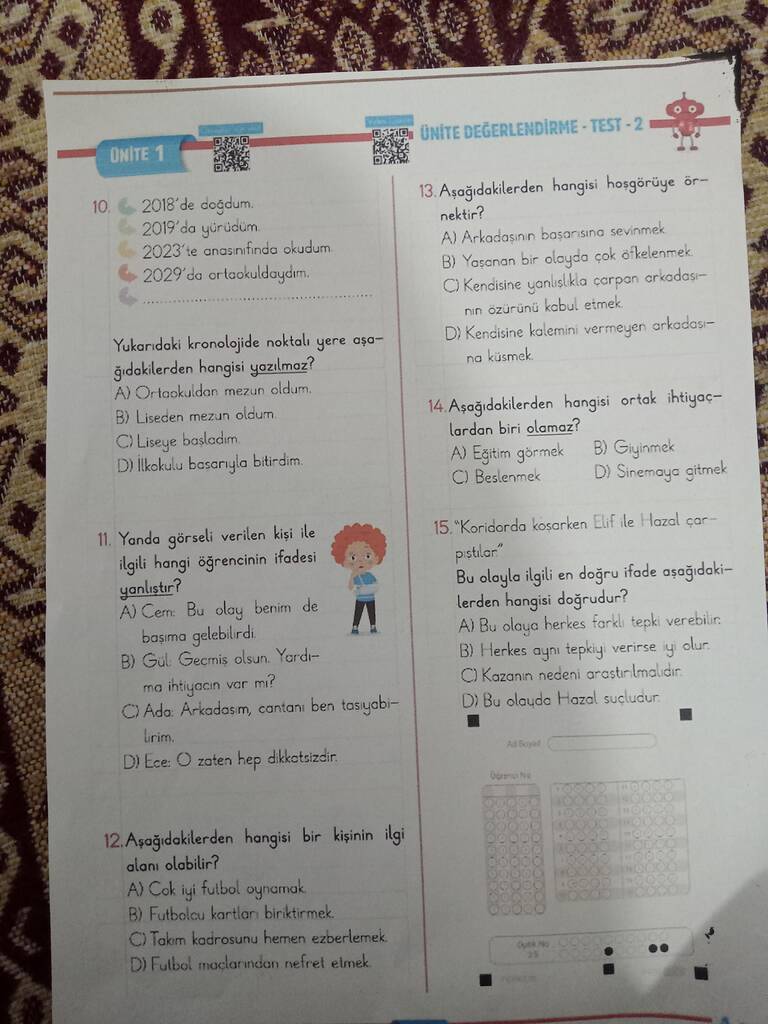 ÜNİTE 1
ÜNİTE DEĞERLENDİRME - TEST - 2
10. 2018'de doğdum.
2019'da yürüdüm.
2023'te anasınıfında okudum.
2029'da ortaokuldaydım.
......................................................
Yukarıdaki kronolojide noktalı yere aşa-
ğıdakilerden hangisi yazılmaz?
A) Ortaokuldan mezun oldum.
B) Liseden mezun oldum.
C) Liseye başladım.
D) İlkokulu başarıyla bitirdim.
11. Yanda görseli verilen kişi ile
ilgili hangi öğrencinin ifadesi
yanlıştır?
A) Cem: Bu olay benim de
başıma gelebilirdi.
B) Gül: Geçmiş olsun. Yardı-
ma ihtiyacın var mı?
C) Ada: Arkadaşım, çantanı ben taşıyabi-
lirim.
D) Ece: O zaten hep dikkatsizdir.
12. Aşağıdakilerden hangisi bir kişinin ilgi
alanı olabilir?
A) Çok iyi futbol oynamak.
B) Futbolcu kartları biriktirmek.
C) Takım kadrosunu hemen ezberlemek.
D) Futbol maçlarından nefret etmek.
13. Aşağıdakilerden hangisi hoşgörüye ör-
nektir?
A) Arkadaşının başarısına sevinmek.
B) Yaşanan bir olayda çok öfkelenmek.
C) Kendisine yanlışlıkla çarpan arkadaşı-
nın özürünü kabul etmek.
D) Kendisine kalemini vermeyen arkadaşı-
na küsmek.
14. Aşağıdakilerden hangisi ortak ihtiyaç-
lardan biri olamaz?
A) Eğitim görmek B) Giyinmek
C) Beslenmek D) Sinemaya gitmek
15. "Koridorda koşarken Elif ile Hazal çar-
pıştılar."
Bu olayla ilgili en doğru ifade aşağıdaki-
lerden hangisi doğrudur?
A) Bu olaya herkes farklı tepki verebilir.
B) Herkes aynı tepkiyi verirse iyi olur.
C) Kazanın nedeni araştırılmalıdır.
D) Bu olayda Hazal suçludur.
Ad Soyad
Öğrenci No
Optik No